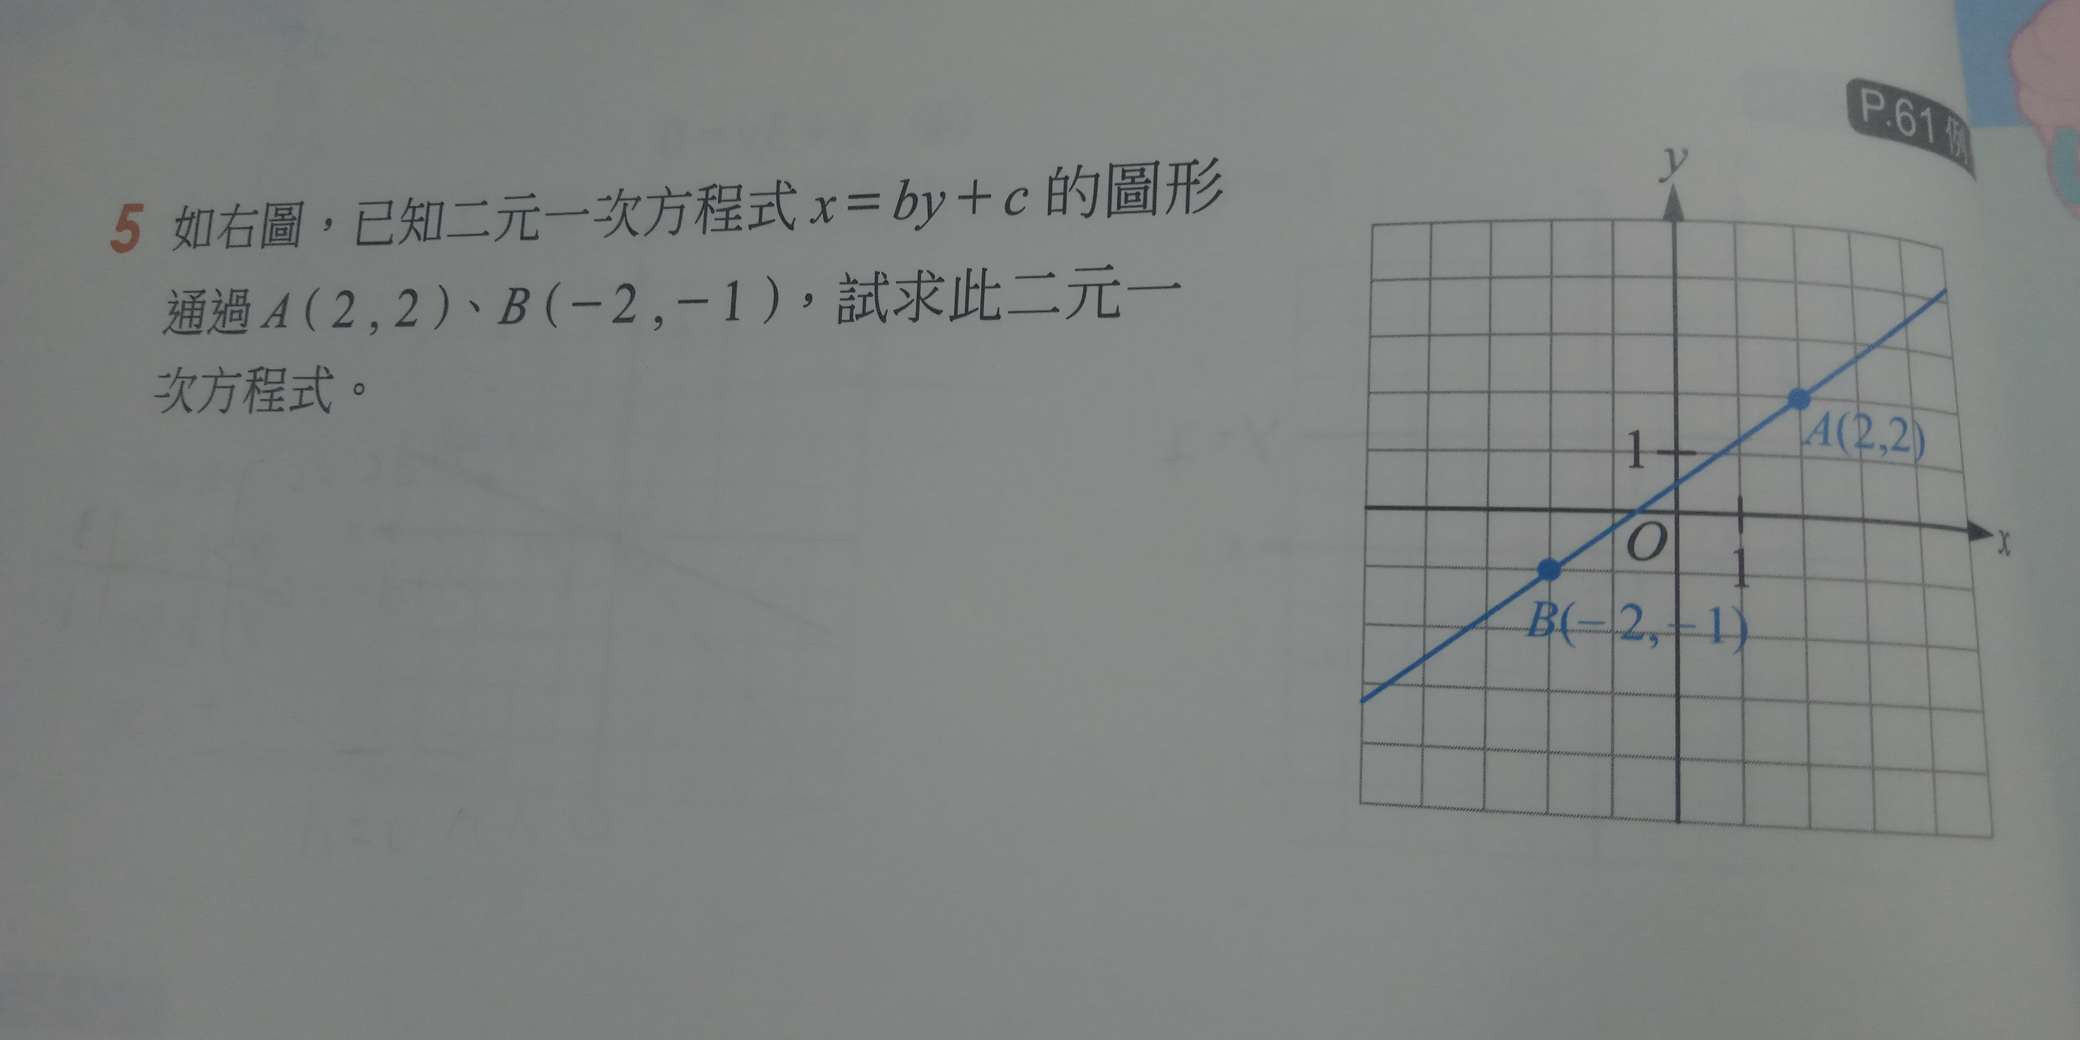 P.61 例
5 如右圖，已知二元一次方程式 x=by+c 的圖形
通過 A(2,2)、B(-2,-1)，試求此二元一
次方程式。
y
A(2,2)
1
O
1
x
B(-2,-1)